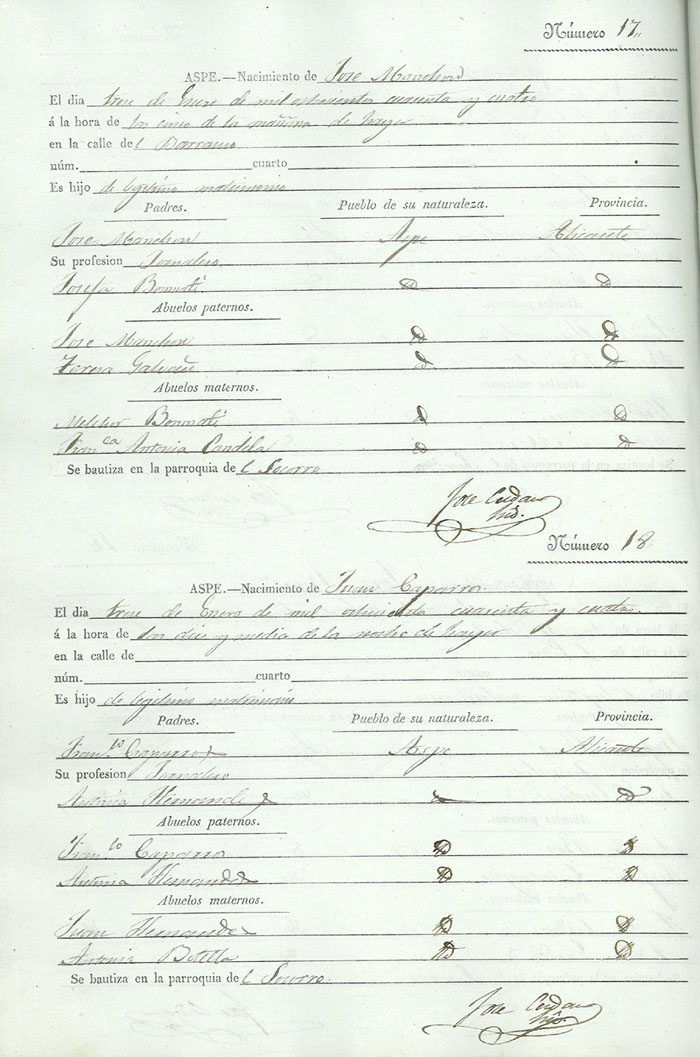 Número 17.
ASPE.—Nacimiento de Jose Manchon
El dia trece de Enero de mil ochocientos cuarenta y cuatro
á la hora de las cinco de la mañana de hayer
en la calle del Barranco
núm. cuarto
Es hijo de legitimo matrimonio
Padres. Pueblo de su naturaleza. Provincia.
Jose Manchon Aspe Alicante
Su profesion Jornalero
Josefa Bonmati D D
Abuelos paternos.
Jose Manchon D D
Teresa Galvañ D D
Abuelos maternos.
Melchor Bonmati D D
Fran.ca Antonia Candela D D
Se bautiza en la parroquia del Socorro
Jose Cerdan
hijo.
Número 18
ASPE.—Nacimiento de Juan Caparros.
El dia trece de Enero de mil ochocientos cuarenta y cuatro
á la hora de las diez y media de la noche de hayer
en la calle de
núm. cuarto
Es hijo de legitimo matrimonio
Padres. Pueblo de su naturaleza. Provincia.
Fran.co Caparros Aspe Alicante
Su profesion Jornalero
Antonia Hernandez D
Abuelos paternos.
Fran.co Caparros D D
Antonia Hernandez D D
Abuelos maternos.
Juan Hernandez D D
Antonia Botella D D
Se bautiza en la parroquia del Socorro.
Jose Cerdan
hijo.